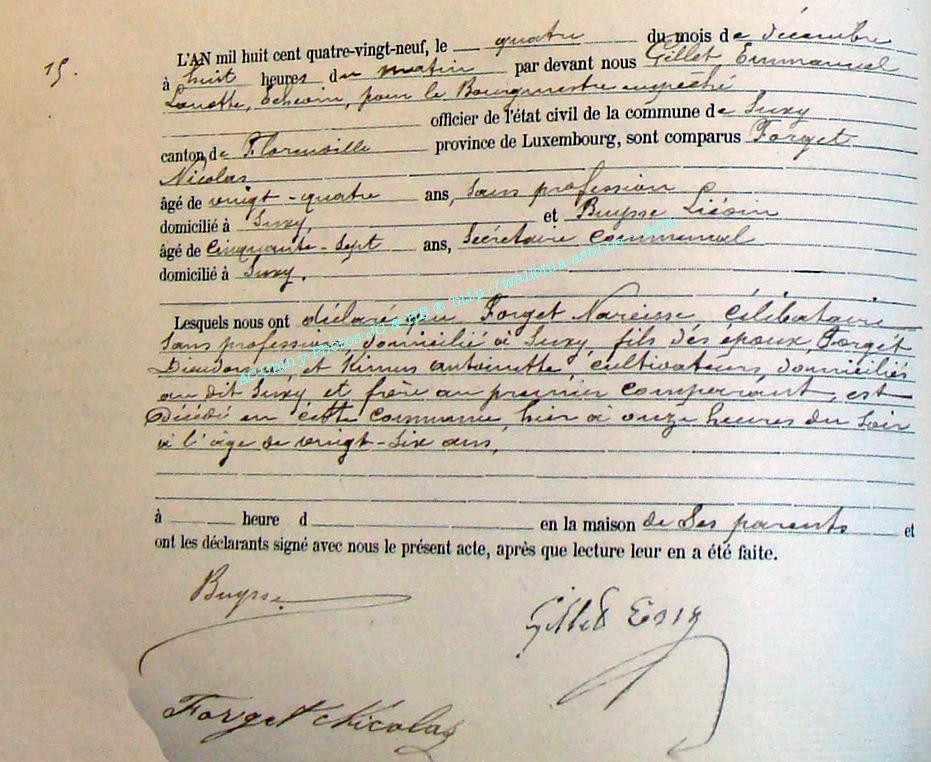 15.
L'AN mil huit cent quatre-vingt-neuf, le quatre du mois de décembre
à huit heures du matin par devant nous Gillet Emmanuel
Echevin, pour le Bourgmestre empêché
officier de l'état civil de la commune de Suxy
canton de Florenville province de Luxembourg, sont comparus Forget
Nicolas
âgé de vingt-quatre ans, sans profession
domicilié à Suxy, et Buysse Liévin
âgé de Cinquante-Sept ans, Secrétaire Communal
domicilié à Suxy.
Lesquels nous ont déclaré que Forget Narcisse, Célibataire
sans profession, domicilié à Suxy, fils des époux Forget
Dieudonné et antoinette, cultivateurs, domiciliés
au dit Suxy et frère au premier comparant, est
Décédé en cette Commune, hier à onze heures du Soir
à l'âge de vingt-six ans,
à heure d en la maison de Ses parents et
ont les déclarants signé avec nous le présent acte, après que lecture leur en a été faite.
Buysse
Gillet
Forget Nicolas